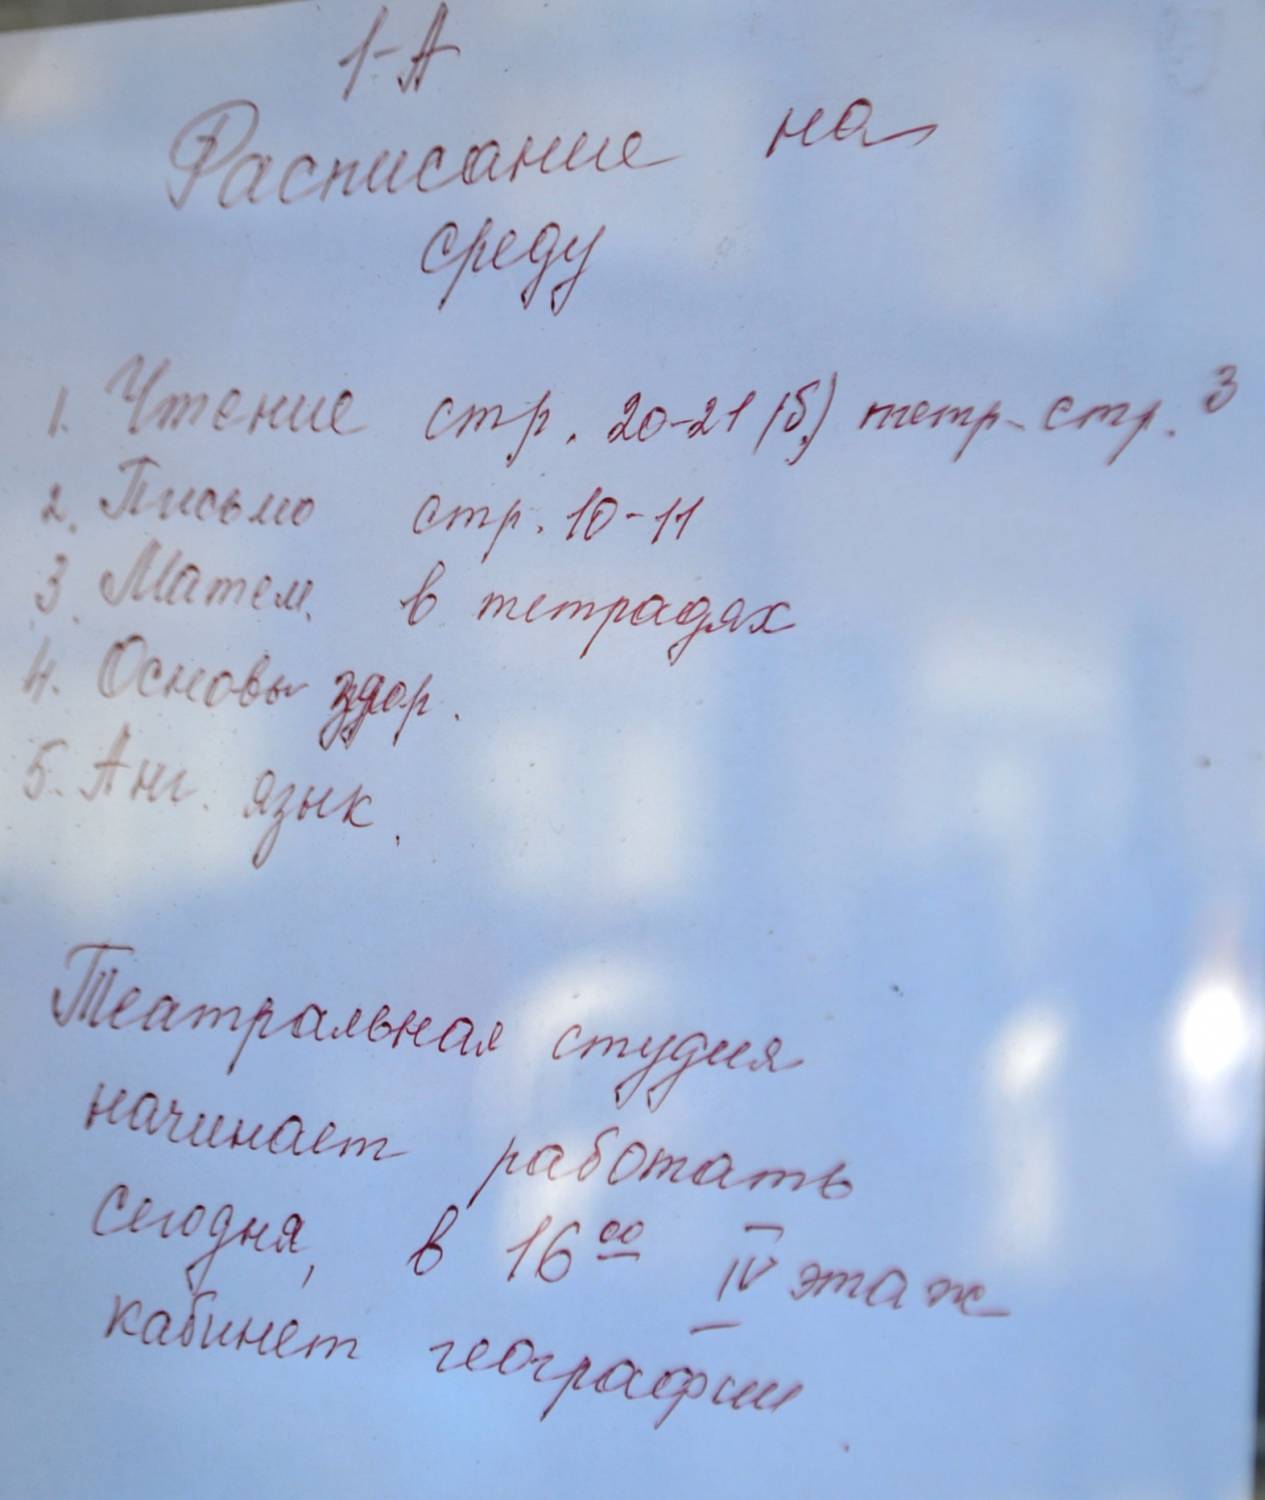 1-А
Расписание на
среду
1. Чтение стр. 20-21 (б) тетр. стр. 3
2. Письмо стр. 10-11
3. Матем. в тетрадях
4. Основы здор.
5. Анг. язык.
Театральная студия
начинает работать
сегодня, в 16 00 IV этаж
кабинет географии